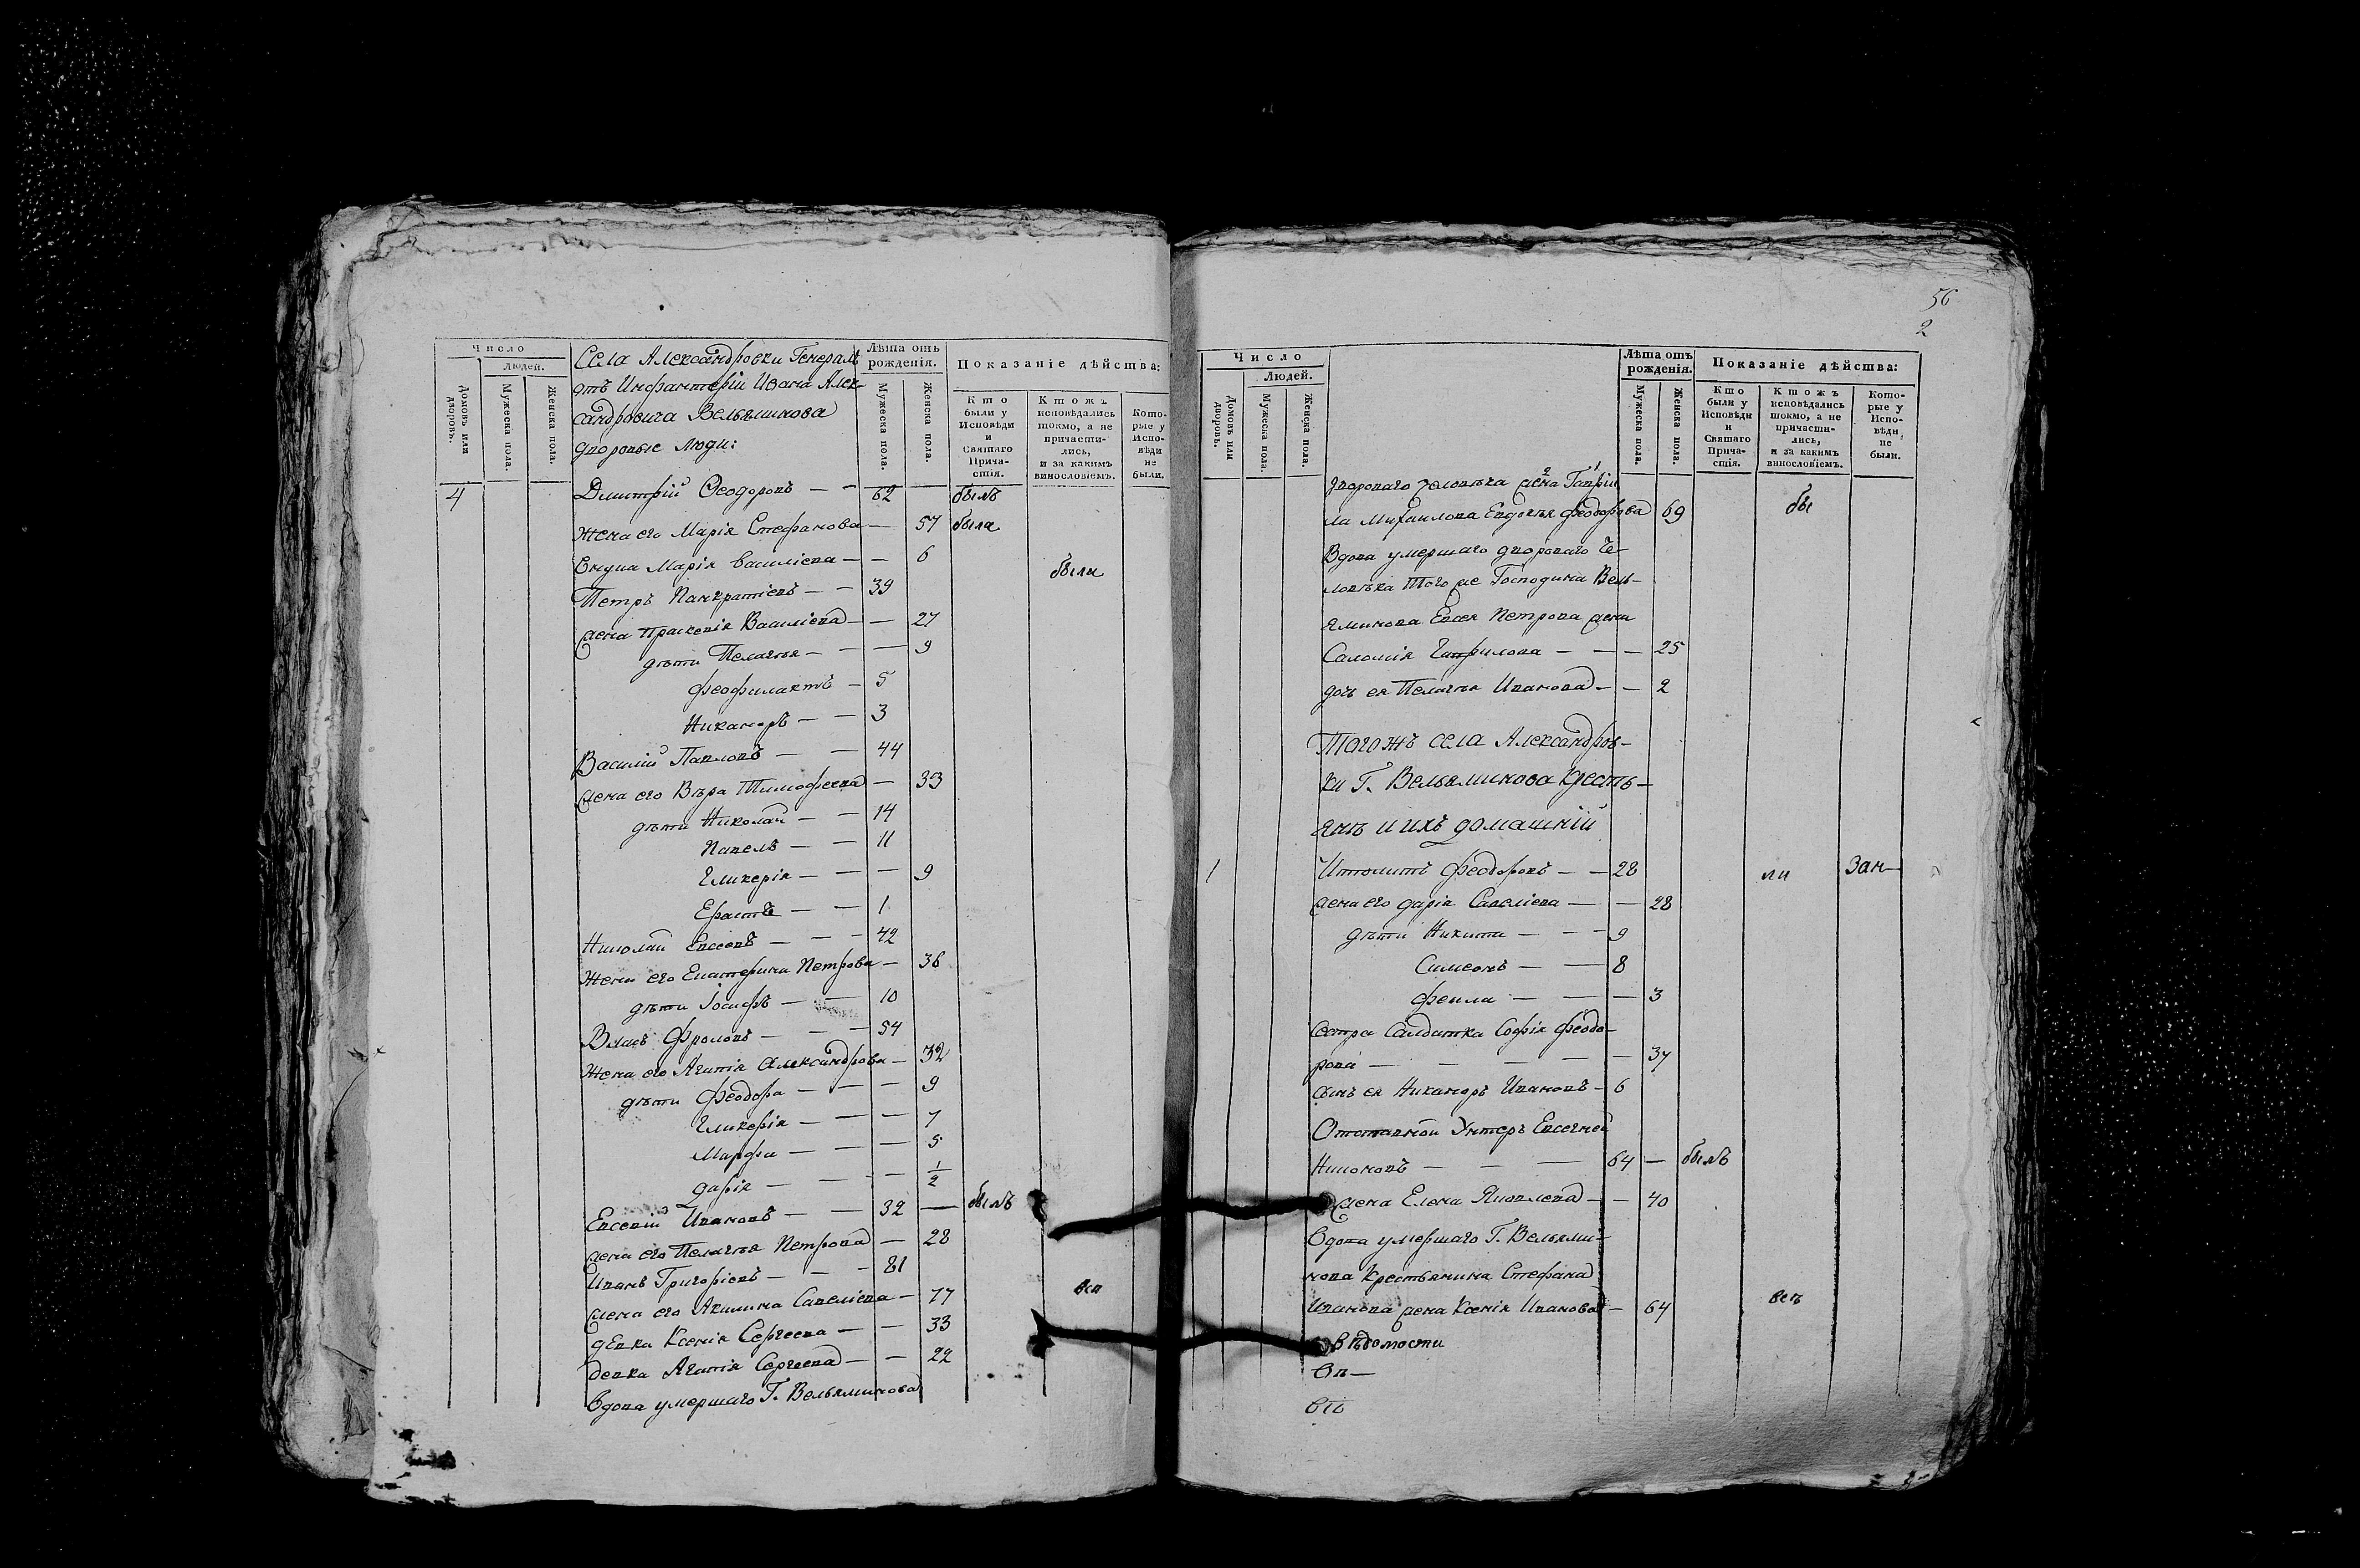 Число
людей.
Домовъ или дворовъ.
Мужеска пола.
Женска пола.
Лѣта отъ рожденія.
Мужеска пола.
Женска пола.
Показаніе дѣйства:
Кто были у Исповѣди и Святаго Прича-стія.
Ктожъ исповѣдались токмо, а не причасти-лись, и за какимъ винословіемъ.
Кото-рые у Испо-вѣди не были.
Села Александровки Генералъ
отъ Инфантеріи Ивана Алек-
сандровича Вельяминова
дворовые люди:
4 Димитрій Ѳеодоровъ — — 62 былъ
жена его Марія Стефанова — 57 была
Внука Марія Василіева — — 6
Петръ Панкратіевъ — — 39 были
жена Праскевія Василіева — — 27
дѣти Пелагея — — — 9
Феофилактъ — 5
Никаноръ — — 3
Василій Павловъ — — 44
жена его Вѣра Тимофеева — 33
дѣти Николай — — 14
Павелъ — — 11
Гликерія — — — 9
Ерастъ — — 1
Николай Евсеевъ — — — 42
жена его Екатерина Петрова — 36
дѣти Іосифъ — — 10
Власъ Фроловъ — — — 54
жена его Агапія Александрова — 32
дѣти Феодора — — — 9
Гликерія — — — 7
Марфа — — — 5
Дарія — — — 1/2
Евсевій Ивановъ — — 32 — былъ
жена его Пелагея Петрова — 28
Иванъ Григоріевъ — — — 81
жена его Акилина Савеліева — 77 всп
дѣвка Ксенія Сергеева — — 33
девка Агапія Сергеева — — 22
Вдова умершаго Г. Вельяминова
56
2
Число
Людей.
Домовъ или дворовъ.
Мужеска пола.
Женска пола.
Лѣта отъ рожденія.
Мужеска пола.
Женска пола.
Показаніе дѣйства:
Кто были у Исповѣди и Святаго Прича-стія.
Ктожъ исповѣдались токмо, а не причасти-лись, и за какимъ винословіемъ.
Кото-рые у Испо-вѣди не были.
2 1
дворового человѣка жена Гаврiи
ла Михаилова Евдокея Феодорова 69 бы
Вдова умершаго двороваго Че-
ловѣка Того же Господина Вель-
яминова Евсея Петрова жена
Саломія Гаврилова — — — 25
дочь ея Пелагея Иванова — — 2
Тогожъ села Александров-
ки Г. Вельяминова Кресть-
янъ и ихъ домашній
1 Ипполитъ Феодоровъ — — 28 ли Зан—
жена его Дарія Савеліева — — 28
дѣти Никита — — — 9
Симеонъ — — 8
Фекла — — — 3
Сестра Салдатка Софія Феодо-
рова — — — — — 37
сынъ ея Никаноръ Ивановъ — 6
Отставной Унтеръ Евсегней
Никоновъ — — — 64 — былъ
жена Елена Яковлева — — 40
Вдова умершаго Г. Вельями-
нова Крестьянина Стефана
Иванова жена Ксенія Иванова — 64 всп
вѣдомости
Вп—
вть